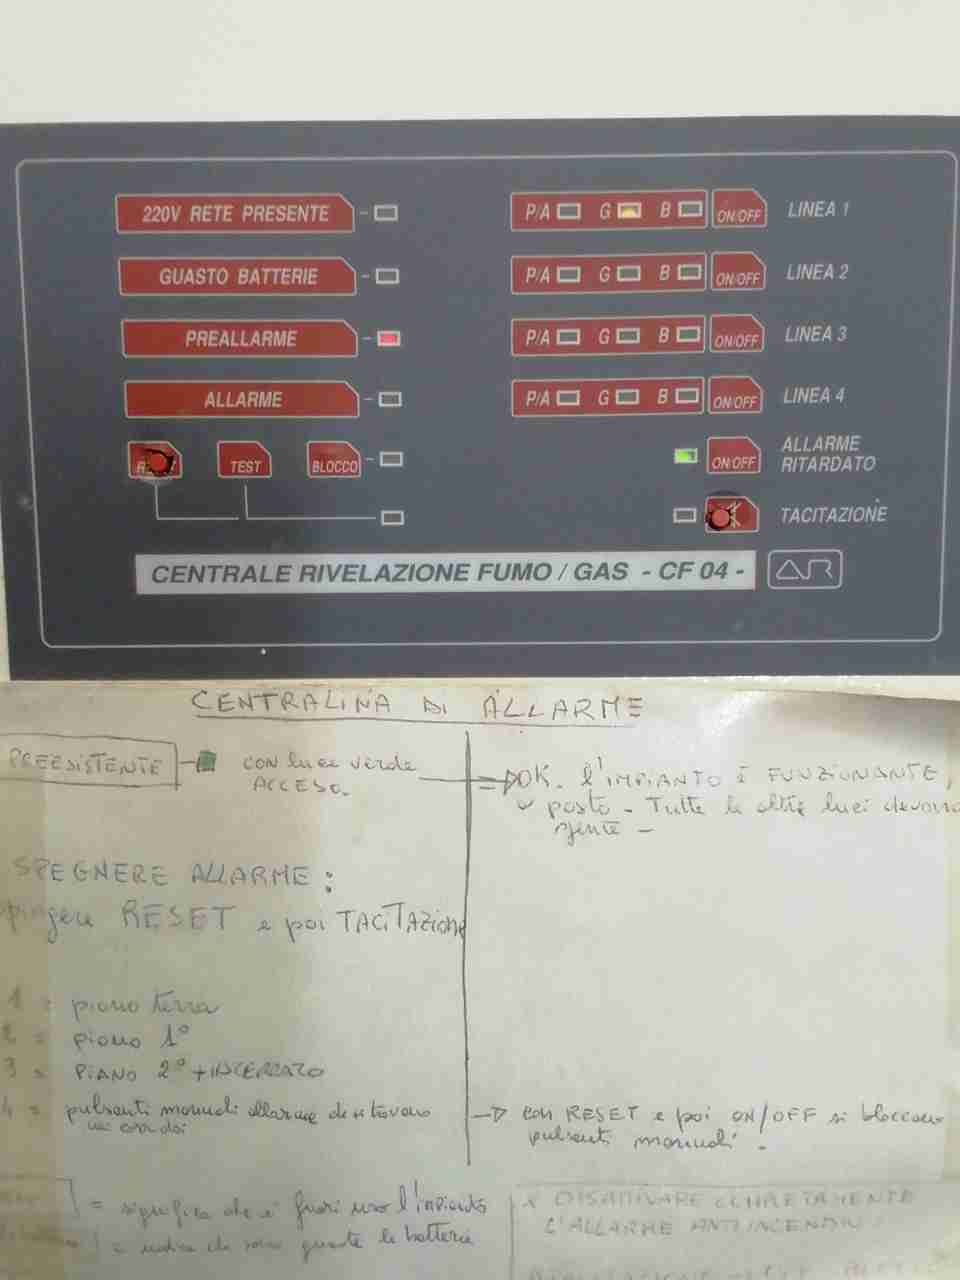 220V RETE PRESENTE
GUASTO BATTERIE
PREALLARME
ALLARME
TEST
BLOCCO
P/A G B ON/OFF LINEA 1
P/A G B ON/OFF LINEA 2
P/A G B ON/OFF LINEA 3
P/A G B ON/OFF LINEA 4
ON/OFF ALLARME
RITARDATO
TACITAZIONE
CENTRALE RIVELAZIONE FUMO / GAS - CF 04 -
CENTRALINA DI ALLARME
PREESISTENTE
con luce verde
ACCESO.
OK. l'IMPIANTO È FUNZIONANTE,
posto - Tutte le altre luci devono
SPEGNERE ALLARME:
RESET e poi TACITAZIONE
1 = piano terra
2 = piano 1°
3 = PIANO 2° + INTERRATO
4 = pulsanti manuali allarme
con RESET e poi ON/OFF si bloccano
pulsanti manuali.
= significa che è fuori uso l'impianto
le batterie
DISATTIVARE COMPLETAMENTE
L'ALLARME ANTINCENDIO